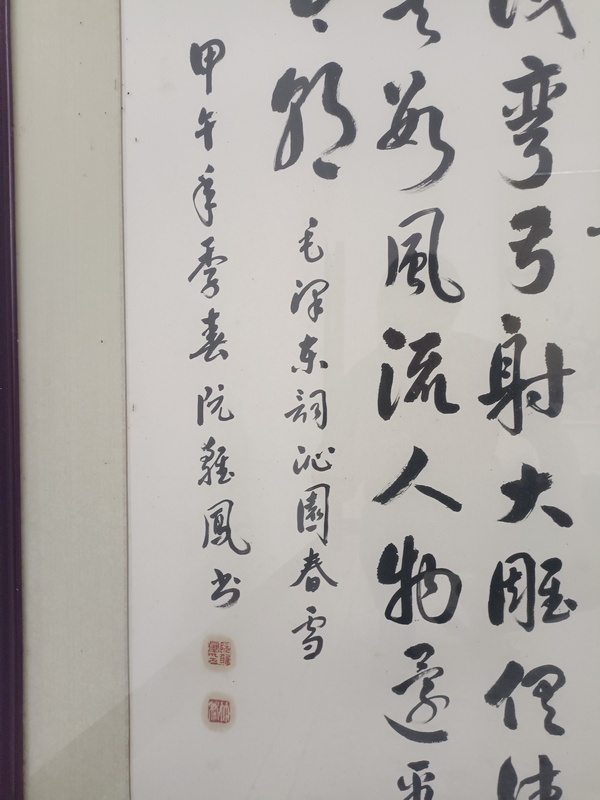 彎弓射大雕俱往
矣數風流人物還看
今朝
毛澤東詞沁園春雪
甲午年季春阮鳳书